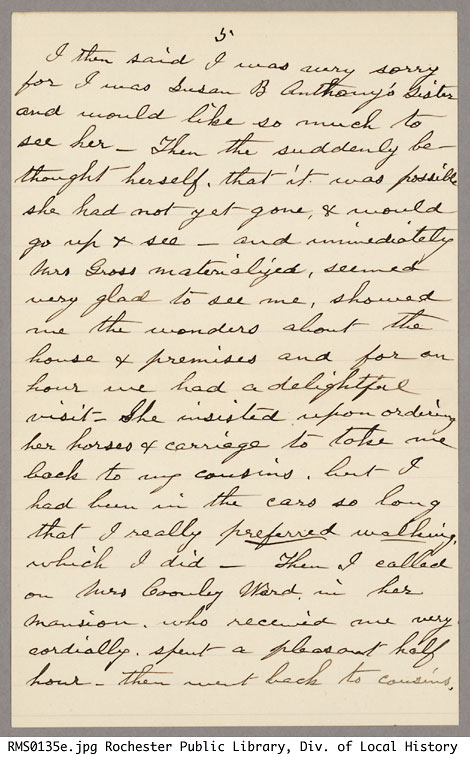 5
I then said I was very sorry
for I was Susan B Anthony's Sister
and would like so much to
see her – Then the suddenly be-
thought herself, that it was possible
she had not yet gone, & would
go up & see – and immediately
Mrs Gross materialized, seemed
very glad to see me, showed
me the wonders about the
house & premises and for an
hour we had a delightful
visit – She insisted upon ordering
her horses & carriage to take me
back to my cousins, but I
had been in the cars so long
that I really preferred walking,
which I did – Then I called
on Mrs Coonley Ward in her
mansion, who received me very
cordially, spent a pleasant half
hour – then went back to cousins.
RMS0135e.jpg Rochester Public Library, Div. of Local History